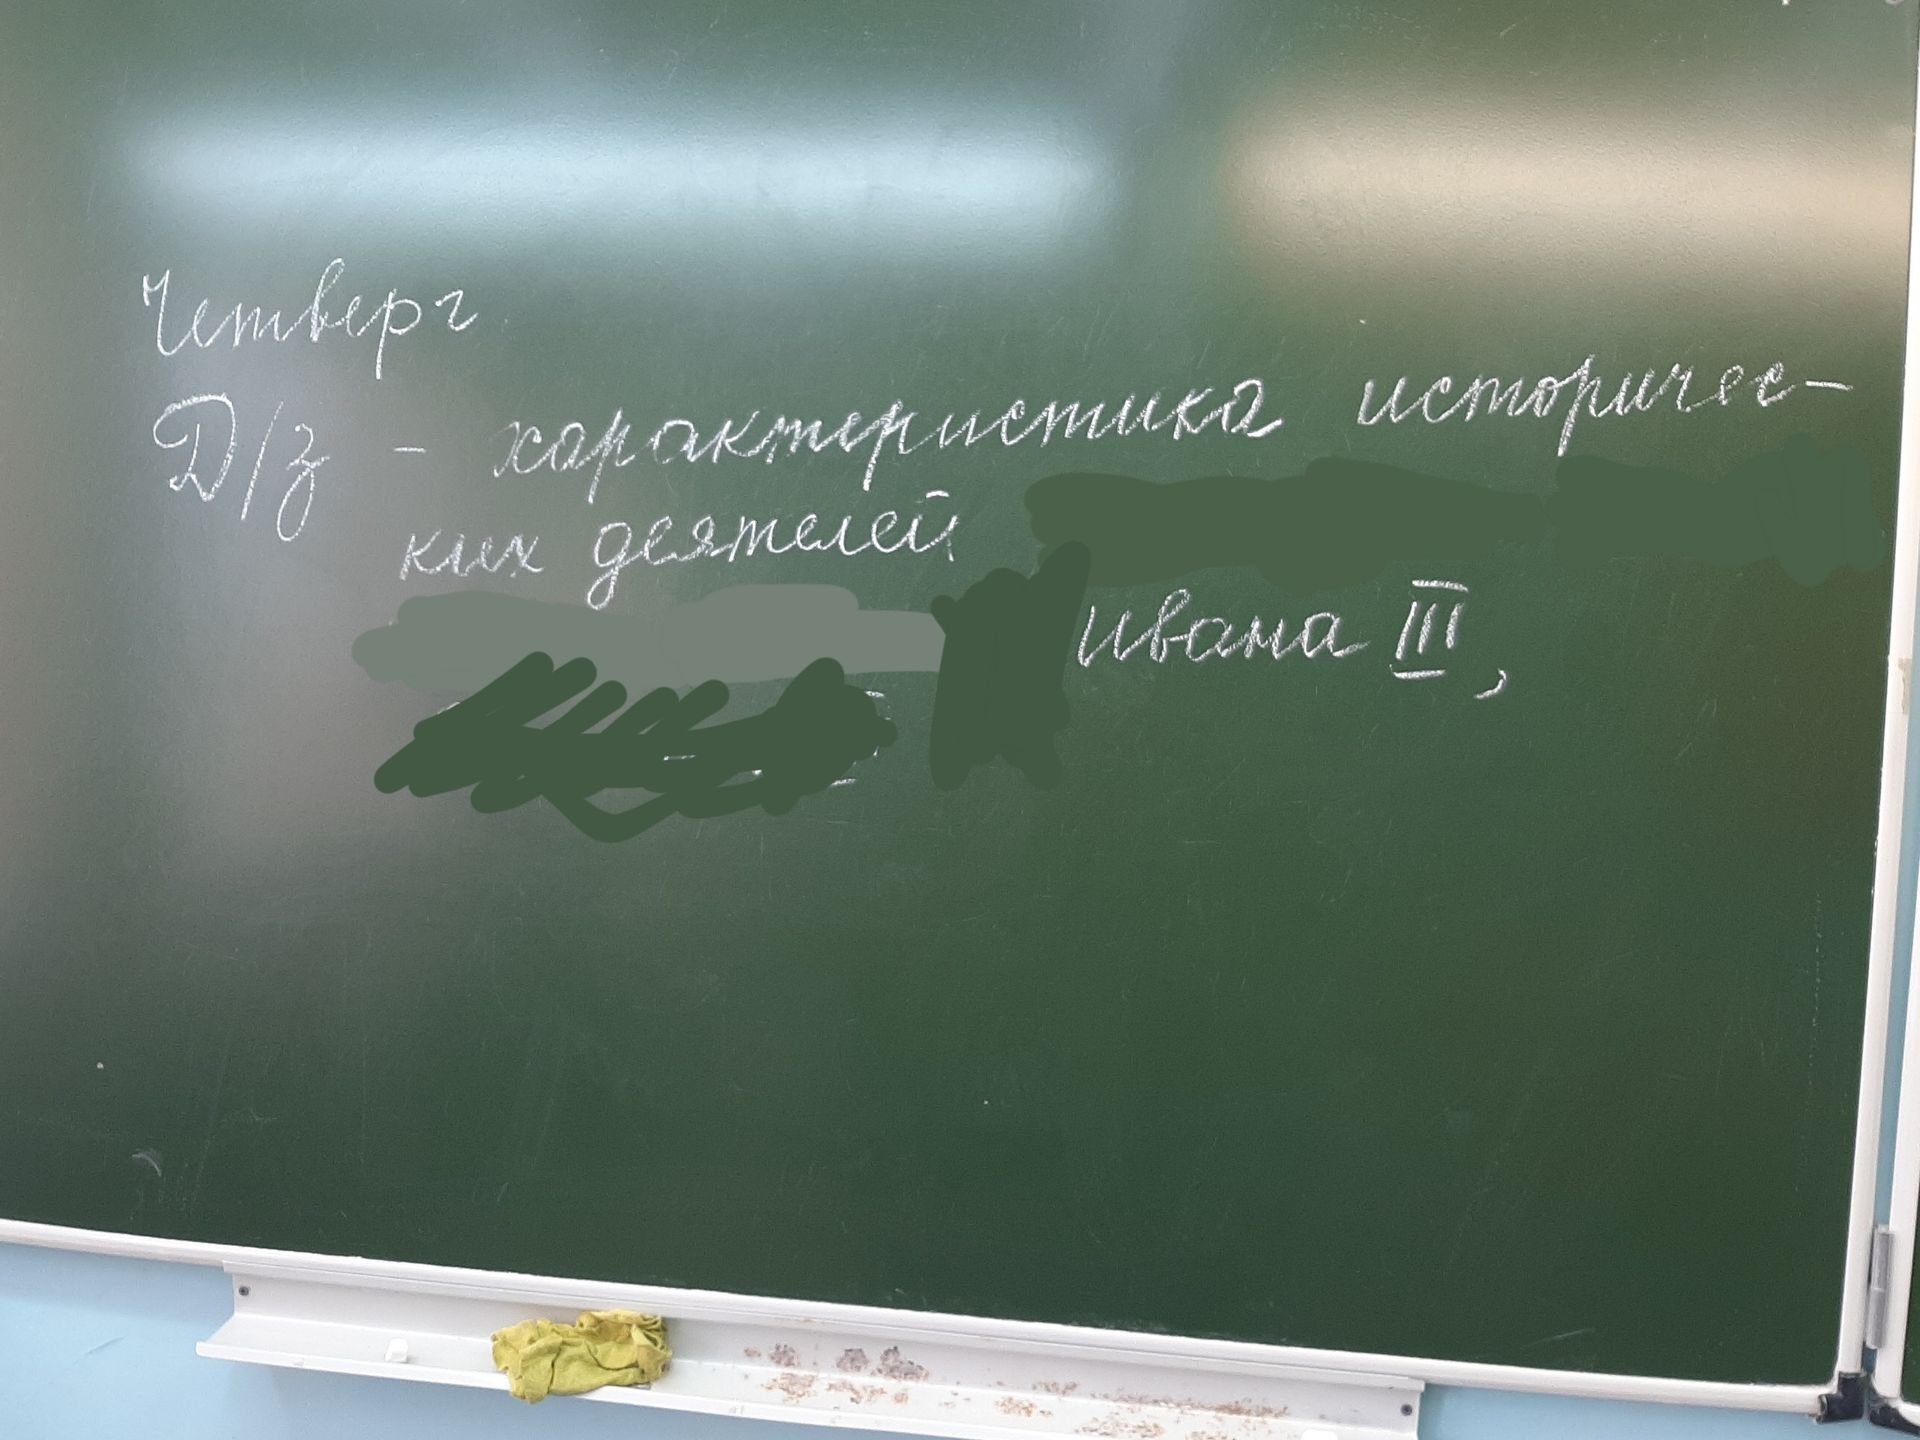 Четверг
Д/з - характеристика историчес-
ких деятелей
Ивана III,